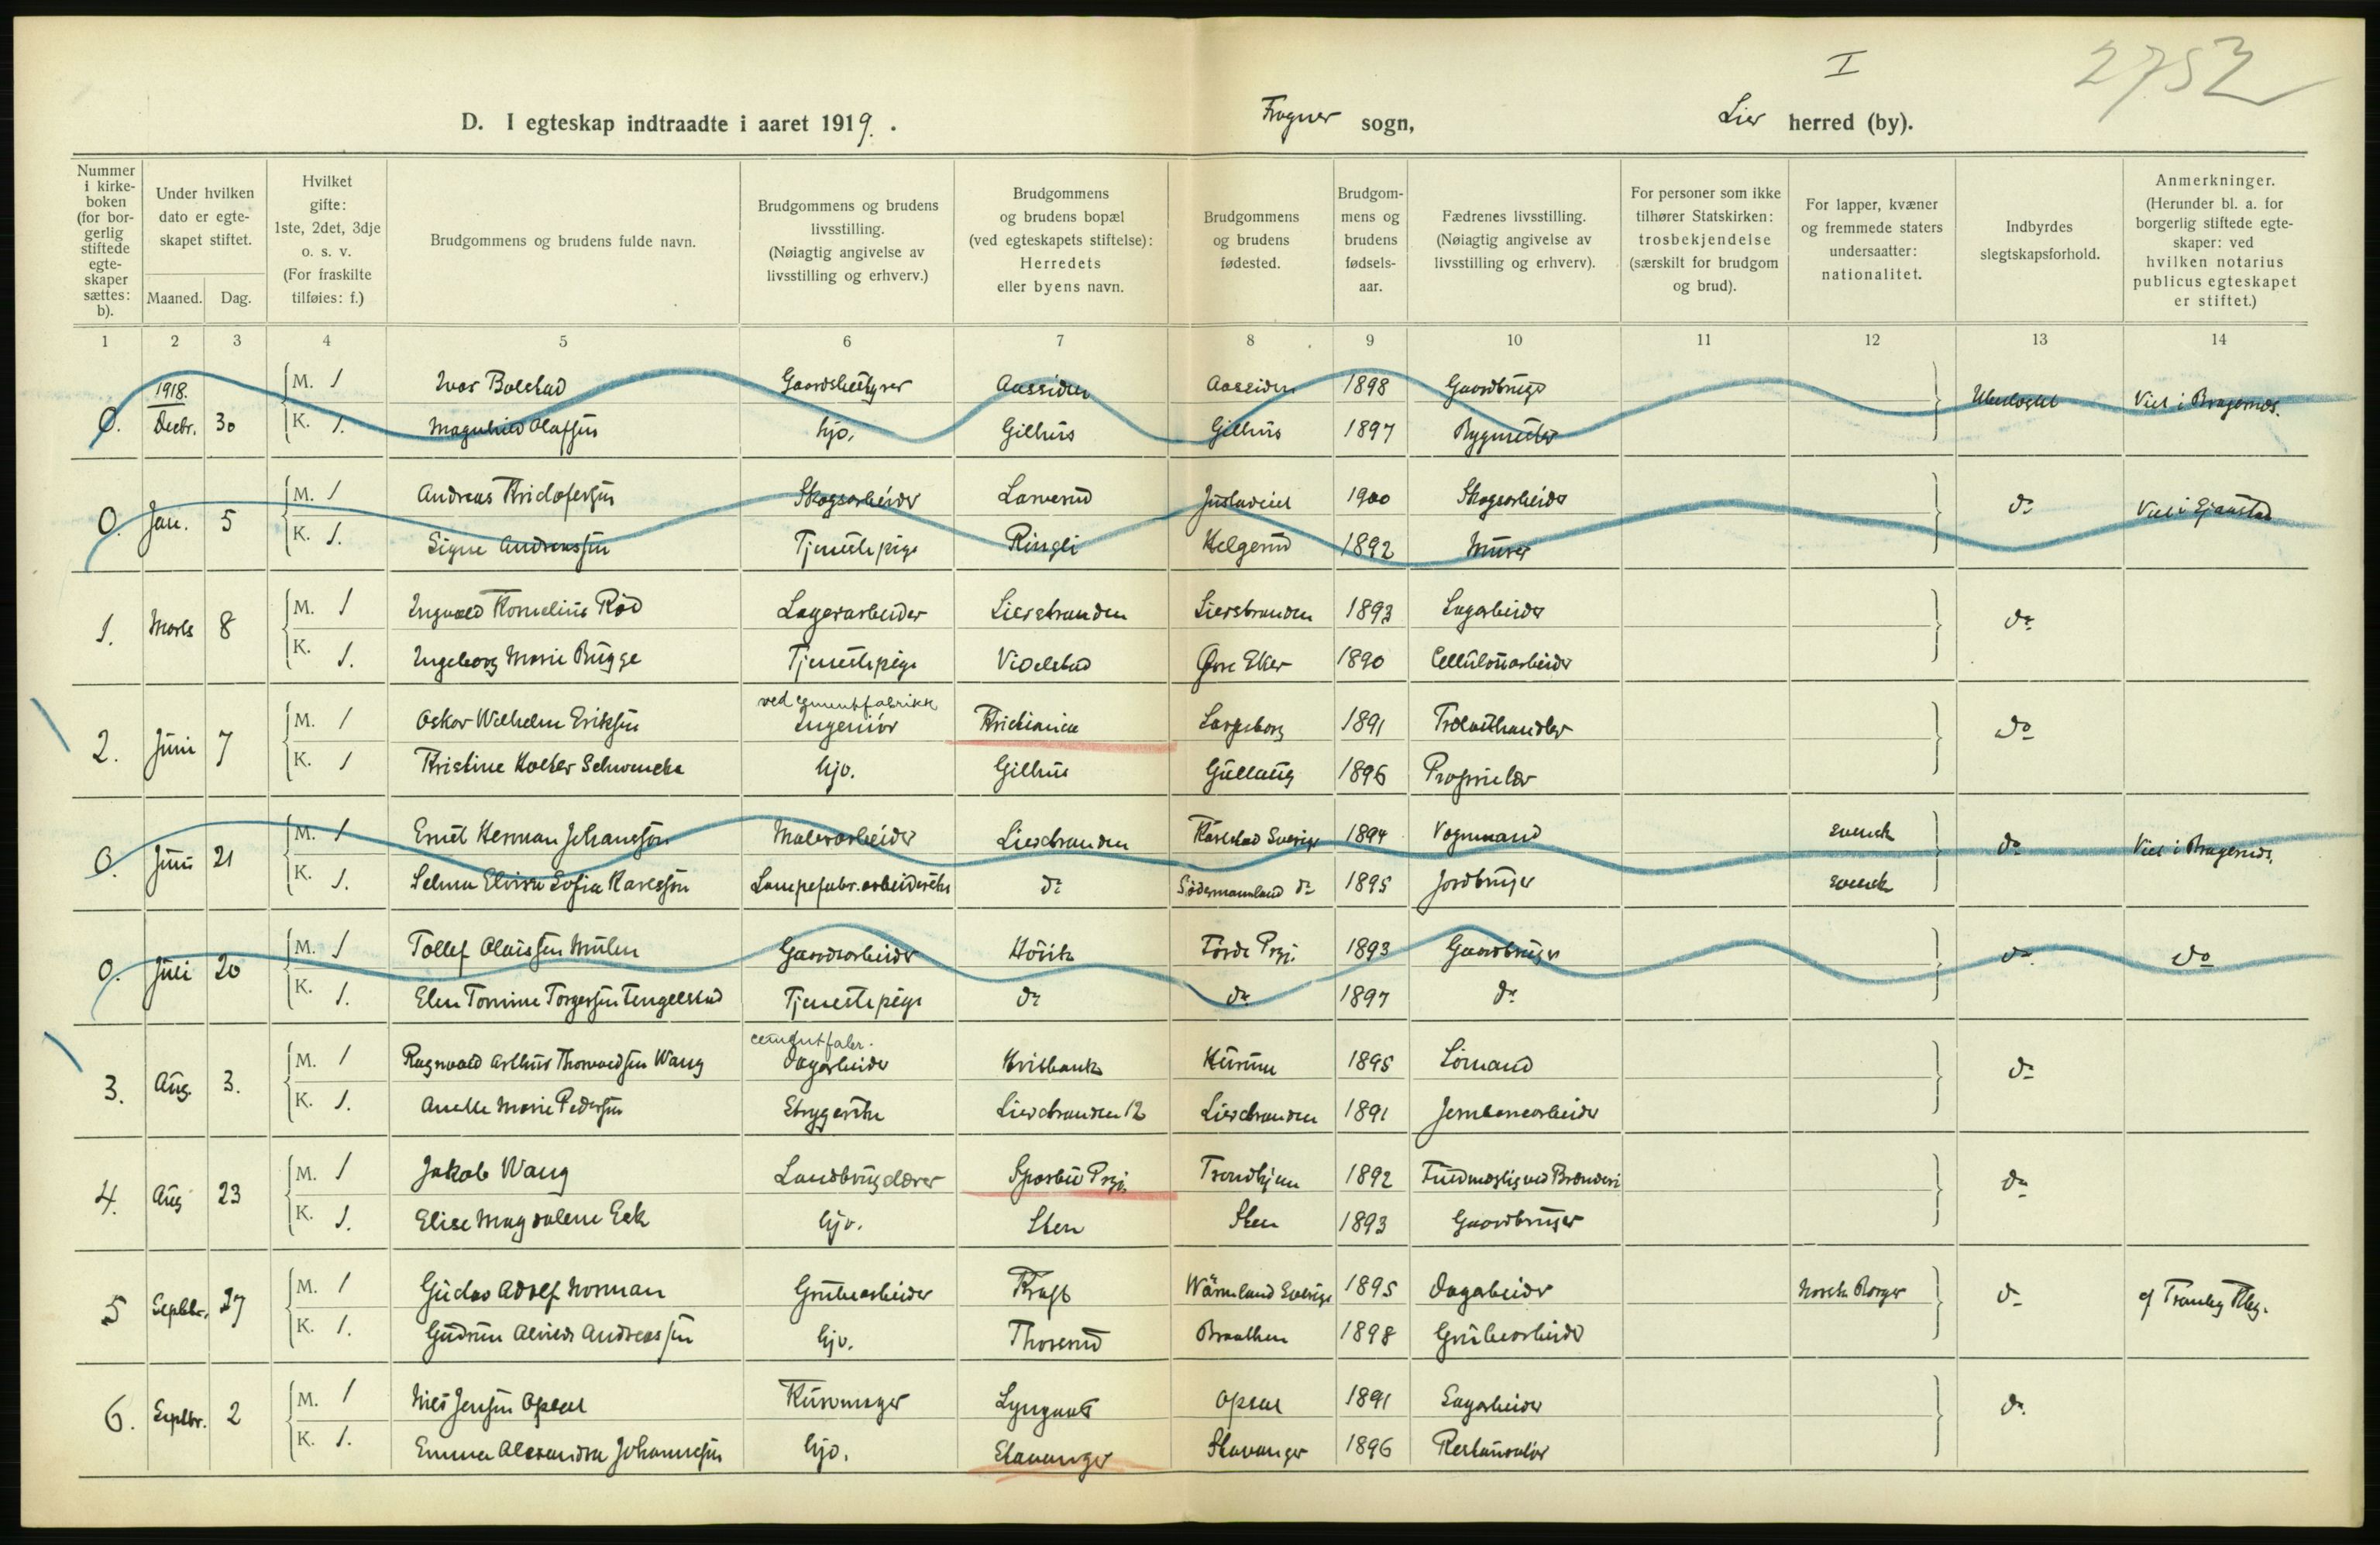 I
2752
D. I egteskap indtraadte i aaret 1919. Frogner sogn, Lier herred (by).
Nummer i kirke-boken (for bor-gerlig stiftede egte-skaper sættes: b).
Under hvilken dato er egte-skapet stiftet.
Maaned. Dag.
Hvilket gifte: 1ste, 2det, 3dje o. s. v. (For fraskilte tilføies: f.)
Brudgommens og brudens fulde navn.
Brudgommens og brudens livsstilling. (Nøiagtig angivelse av livsstilling og erhverv.)
Brudgommens og brudens bopæl (ved egteskapets stiftelse): Herredets eller byens navn.
Brudgommens og brudens fødested.
Brudgom-mens og brudens fødsels-aar.
Fædrenes livsstilling. (Nøiagtig angivelse av livsstilling og erhverv).
For personer som ikke tilhører Statskirken: trosbekjendelse (særskilt for brudgom og brud).
For lapper, kvæner og fremmede staters undersaatter: nationalitet.
Indbyrdes slegtskapsforhold.
Anmerkninger. (Herunder bl. a. for borgerlig stiftede egte-skaper: ved hvilken notarius publicus egteskapet er stiftet.)
1 2 3 4 5 6 7 8 9 10 11 12 13 14
1918.
0. Decbr. 30
M. 1 Ivar Bolstad Gaardsbestyrer Aassiden Aasseiden 1898 Gaardbruger Ubeslægtet Viet i Bragernes.
K. 1. Magnhild Olafsen hjo. Gilhus Gilhus 1897 Bygmester
0. Jan. 5
M. 1 Andreas Kristofersen Skogsarbeider Larverud 1900 Skogsarbeider do Viet i Sjaastad
K. 1. Signe Andreassen Tjenestepige Ringli Helgerud 1892 Murer
1. Marts 8
M. 1 Ingvald Kornelius Rød Lagerarbeider Lierstranden Lierstranden 1893 Sagarbeider do
K. 1. Ingeborg Marie Bugge Tjenestepige Vivelstad Øvre Eker 1890 Cellulosearbeider
2. Juni 7
ved cementfabrikk
M. 1 Oskar Wilhelm Eriksen Ingeniør Kristiania Sarpsborg 1891 Trælasthandler do
K. 1 Kristine Holter Schwencke hjo. Gilhus Gullaug 1896 Proprietær
0. Juni 21
M. 1 Ernst Herman Johansson Malerarbeider Lierstranden Karlstad Sverige 1894 Vognmand svensk do Viet i Bragernes.
K. 1. Selma Elvira Sofia Karlsson Lampefabr.arbeiderske do Södermannland do 1895 Jordbruger svensk
0. Juli 20
M. 1 Tollef Olaisen Mulen Gaardsarbeider Hörik Förde Prgj. 1893 Gaardbruger do do
K. 1. Elen Tomine Torgersen Tengelstad Tjenestepige do do 1897 do
3. Aug. 3.
cementfabr.
M. 1 Ragnvald Arthur Thorvaldsen Wang Dagarbeider Kvitbank Hurum 1895 Sömand do
K. 1. Anette Marie Pedersen Strygerske Lierstranden 12 Lierstranden 1891 Jernbanearbeider
4. Aug 23
M. 1 Jakob Wang Landbrugslærer Sparbu Prgj. Trondhjem 1892 Fuldmægtig ved Brænderi do
K. 1. Elise Magdalene Eek hjo. Sten Sten 1893 Gaardbruger
5 Septbr. 27
M. 1 Gustav Adolf Norman Grubearbeider Kraft Wärmland Sverige 1895 Dagarbeider Norsk Borger do cf Tranby Kbg.
K. 1. Gudrun Alvilde Andreassen hjo. Thorerud Braathen 1898 Grubearbeider
6. Septbr. 2
M. 1 Nils Jensen Opsal Kurvmager Lyngaas Opsal 1891 Sagarbeider do.
K. 1. Emma Alexandra Johannesen hjo. Stavanger Stavanger 1896 Restauratör